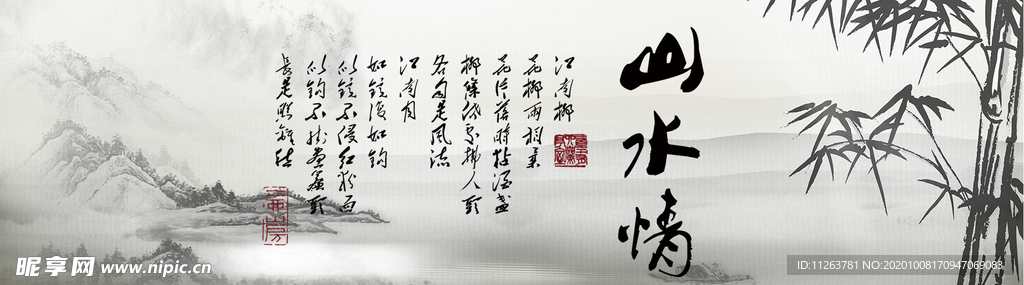 山水情
江南柳
花柳兩相柔
花片落時粘酒盞
柳條低處拂人頭
各自是風流
江南月
如鏡復如鉤
似鏡不侵紅粉面
似鉤不掛畫簾頭
長是照離愁
昵享网 www.nipic.cn
ID:11263781 NO:20201008170947069083